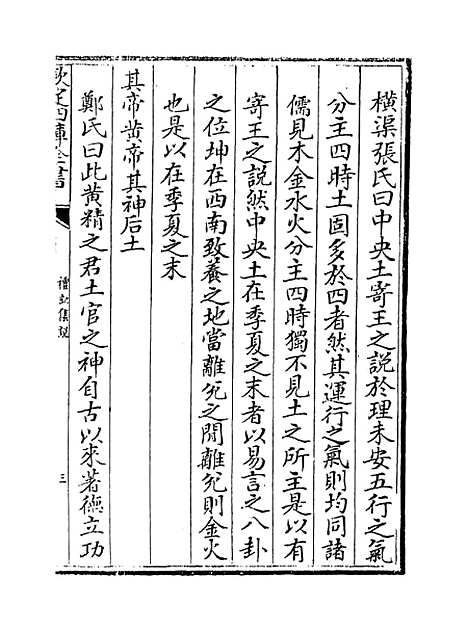 橫渠張氏曰中央土寄王之說於理未安五行之氣
分主四時土固多於四者然其運行之氣則均同諸
儒見木金水火分主四時獨不見土之所主是以有
寄王之說然中央土在季夏之末者以易言之八卦
之位坤在西南致養之地當離兊之間離兊則金火
也是以在季夏之末
其帝黄帝其神后土
鄭氏曰此黄精之君土官之神自古以來著德立功
欽定四庫全書
禮記集說
三